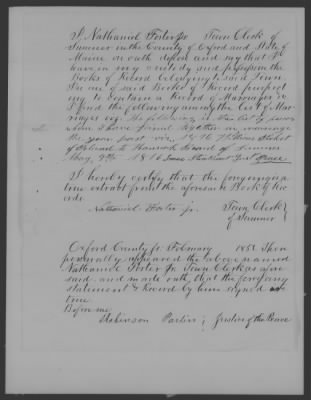 I, Nathaniel Foster Jr. Town Clerk of
Sumner in the County of Oxford and State of
Maine on oath depose and say that I
have in my custody and possession the
Books of Record belonging to said Town.
In one of said Books of Record purport
ing to contain a Record of Marriages &c
I find the following among the List of Mar
riages viz. The following is the list of persons
whom I have joined together in marriage
the year past viz. 1816
of to Hannah of Sumner
May 9th 1816 Peace
I hereby certify that the foregoing is a
true extract from the aforesaid Book of Rec
ords
Nathaniel Foster Jr. Town Clerk
of Sumner
Oxford County ss. February 1851 Then
personally appeared the above named
Nathaniel Foster Jr. Town Clerk as afore
said and made oath, that the foregoing
statement & Record by him signed is
true
Before me
Justice of the Peace